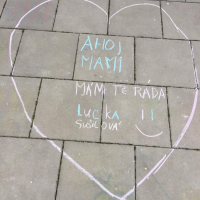 AHOJ
MAMI
MÁM TĚ RÁDA
LUCKA
SUŠILOVÁ